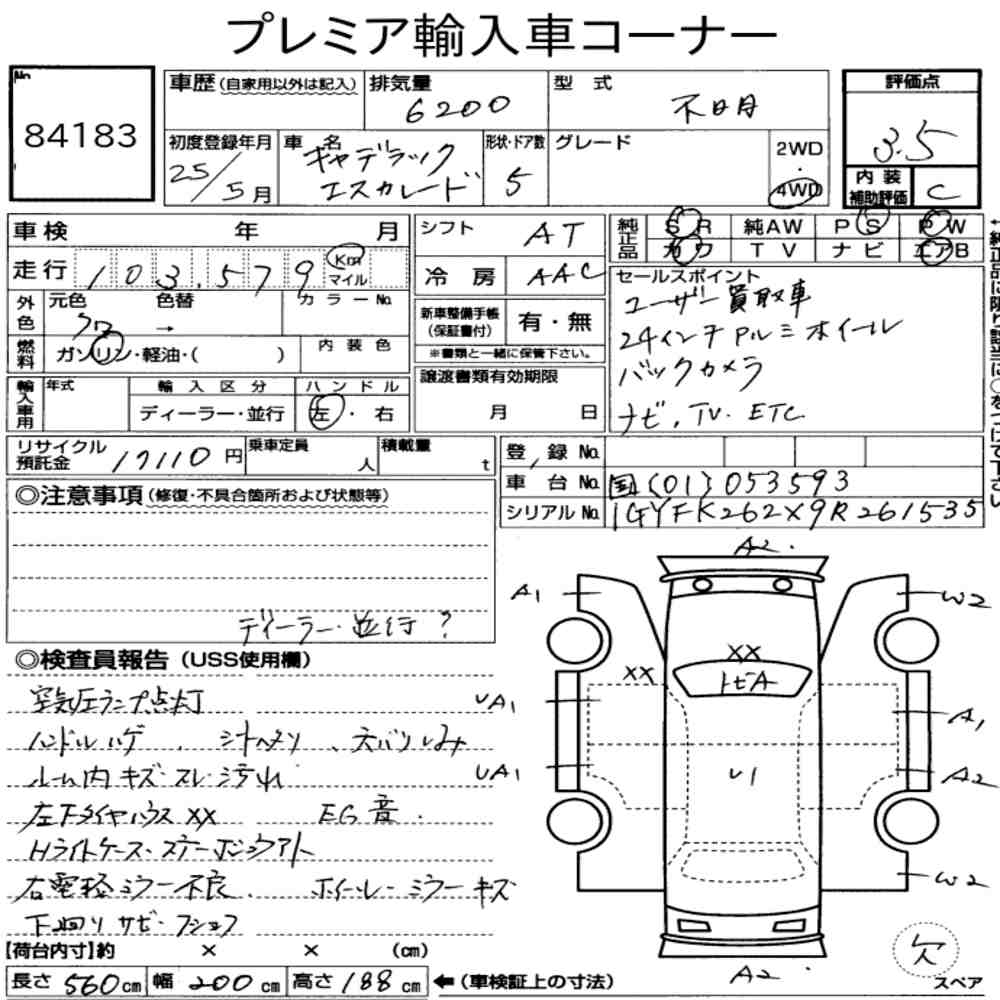 プレミア輸入車コーナー
No. 84183
車歴 (自家用以外は記入) 排気量 6200 型式 不明
評価点 3.5
初度登録年月 25/5月 車名 キャデラック エスカレード 形状・ドア数 5 グレード 2WD・4WD
内装補助評価 C
車検 年 月 シフト AT 純正品 SR 純AW PS PW
カワ TV ナビ エアB
走行 103,579 Km マイル 冷房 AAC
↑純正品に限り該当に○をつけて下さい
セールスポイント
ユーザー買取車
24インチアルミホイール
バックカメラ
ナビ、TV. ETC
外色 元色 クロ → 色替 カラーNo.
新車整備手帳(保証書付) 有・無
※書類と一緒に保管下さい。
燃料 ガソリン・軽油・( ) 内装色
輸入車用 年式 輸入区分 ディーラー・並行 ハンドル 左・右
譲渡書類有効期限 月 日
リサイクル預託金 17110円 乗車定員 人 積載量 t
登録No.
車台No. 国(01)053593
シリアルNo. 1GYFK262X9R261535
◎注意事項(修復・不具合箇所および状態等)
ディーラー・並行?
◎検査員報告(USS使用欄)
空気圧ランプ点灯
ハンドルハゲ、シートヘタリ、天バリしみ
ルーム内キズ・スレ・汚れ
左Fタイヤハウス XX EG音.
Hライトケース・ステー・ボンシツアト
右電格ミラー不良. ホイール・ミラーキズ
下回りサビ・フショク
A2.
A1
W2
XX
XX
トビA
UA1
A1
UA1
U1
A2
W2
A2.
欠
スペア
【荷台内寸】約 × × (cm)
長さ 560cm 幅 200cm 高さ 188cm ←(車検証上の寸法)